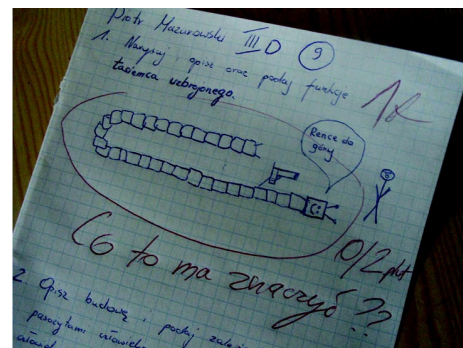 Piotr Mazurowski III D 9
1. Narysuj, opisz oraz podaj funkcje
tasiemca uzbrojonego.
Rence do
góry
0/2 pkt
Co to ma znaczyć ??
2. Opisz budowę, podaj
pasożytami